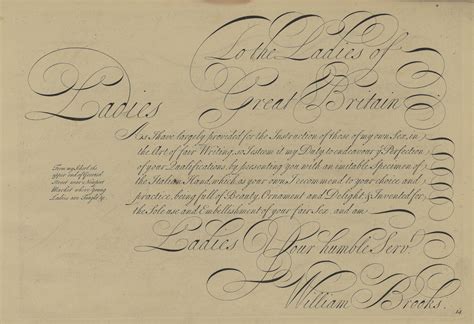 To the Ladies of
Great Britain
Ladies
As I have largely provided for the Instruction of those of my own Sex, in
the Art of fair Writing, so I esteem it my Duty to endeavour y.e Perfection
of your Qualifications, by presenting you with an imitable Specimen of
the Italian Hand, which as your own I recommend to your choice and
practice, being full of Beauty, Ornament and Delight & Invented for
the Sole use and Embellishment of your fair Sex, and am
From my School the
upper end of
Street near
where young
Ladies are Taught by
Ladies Your humble Serv.
William Brooks.